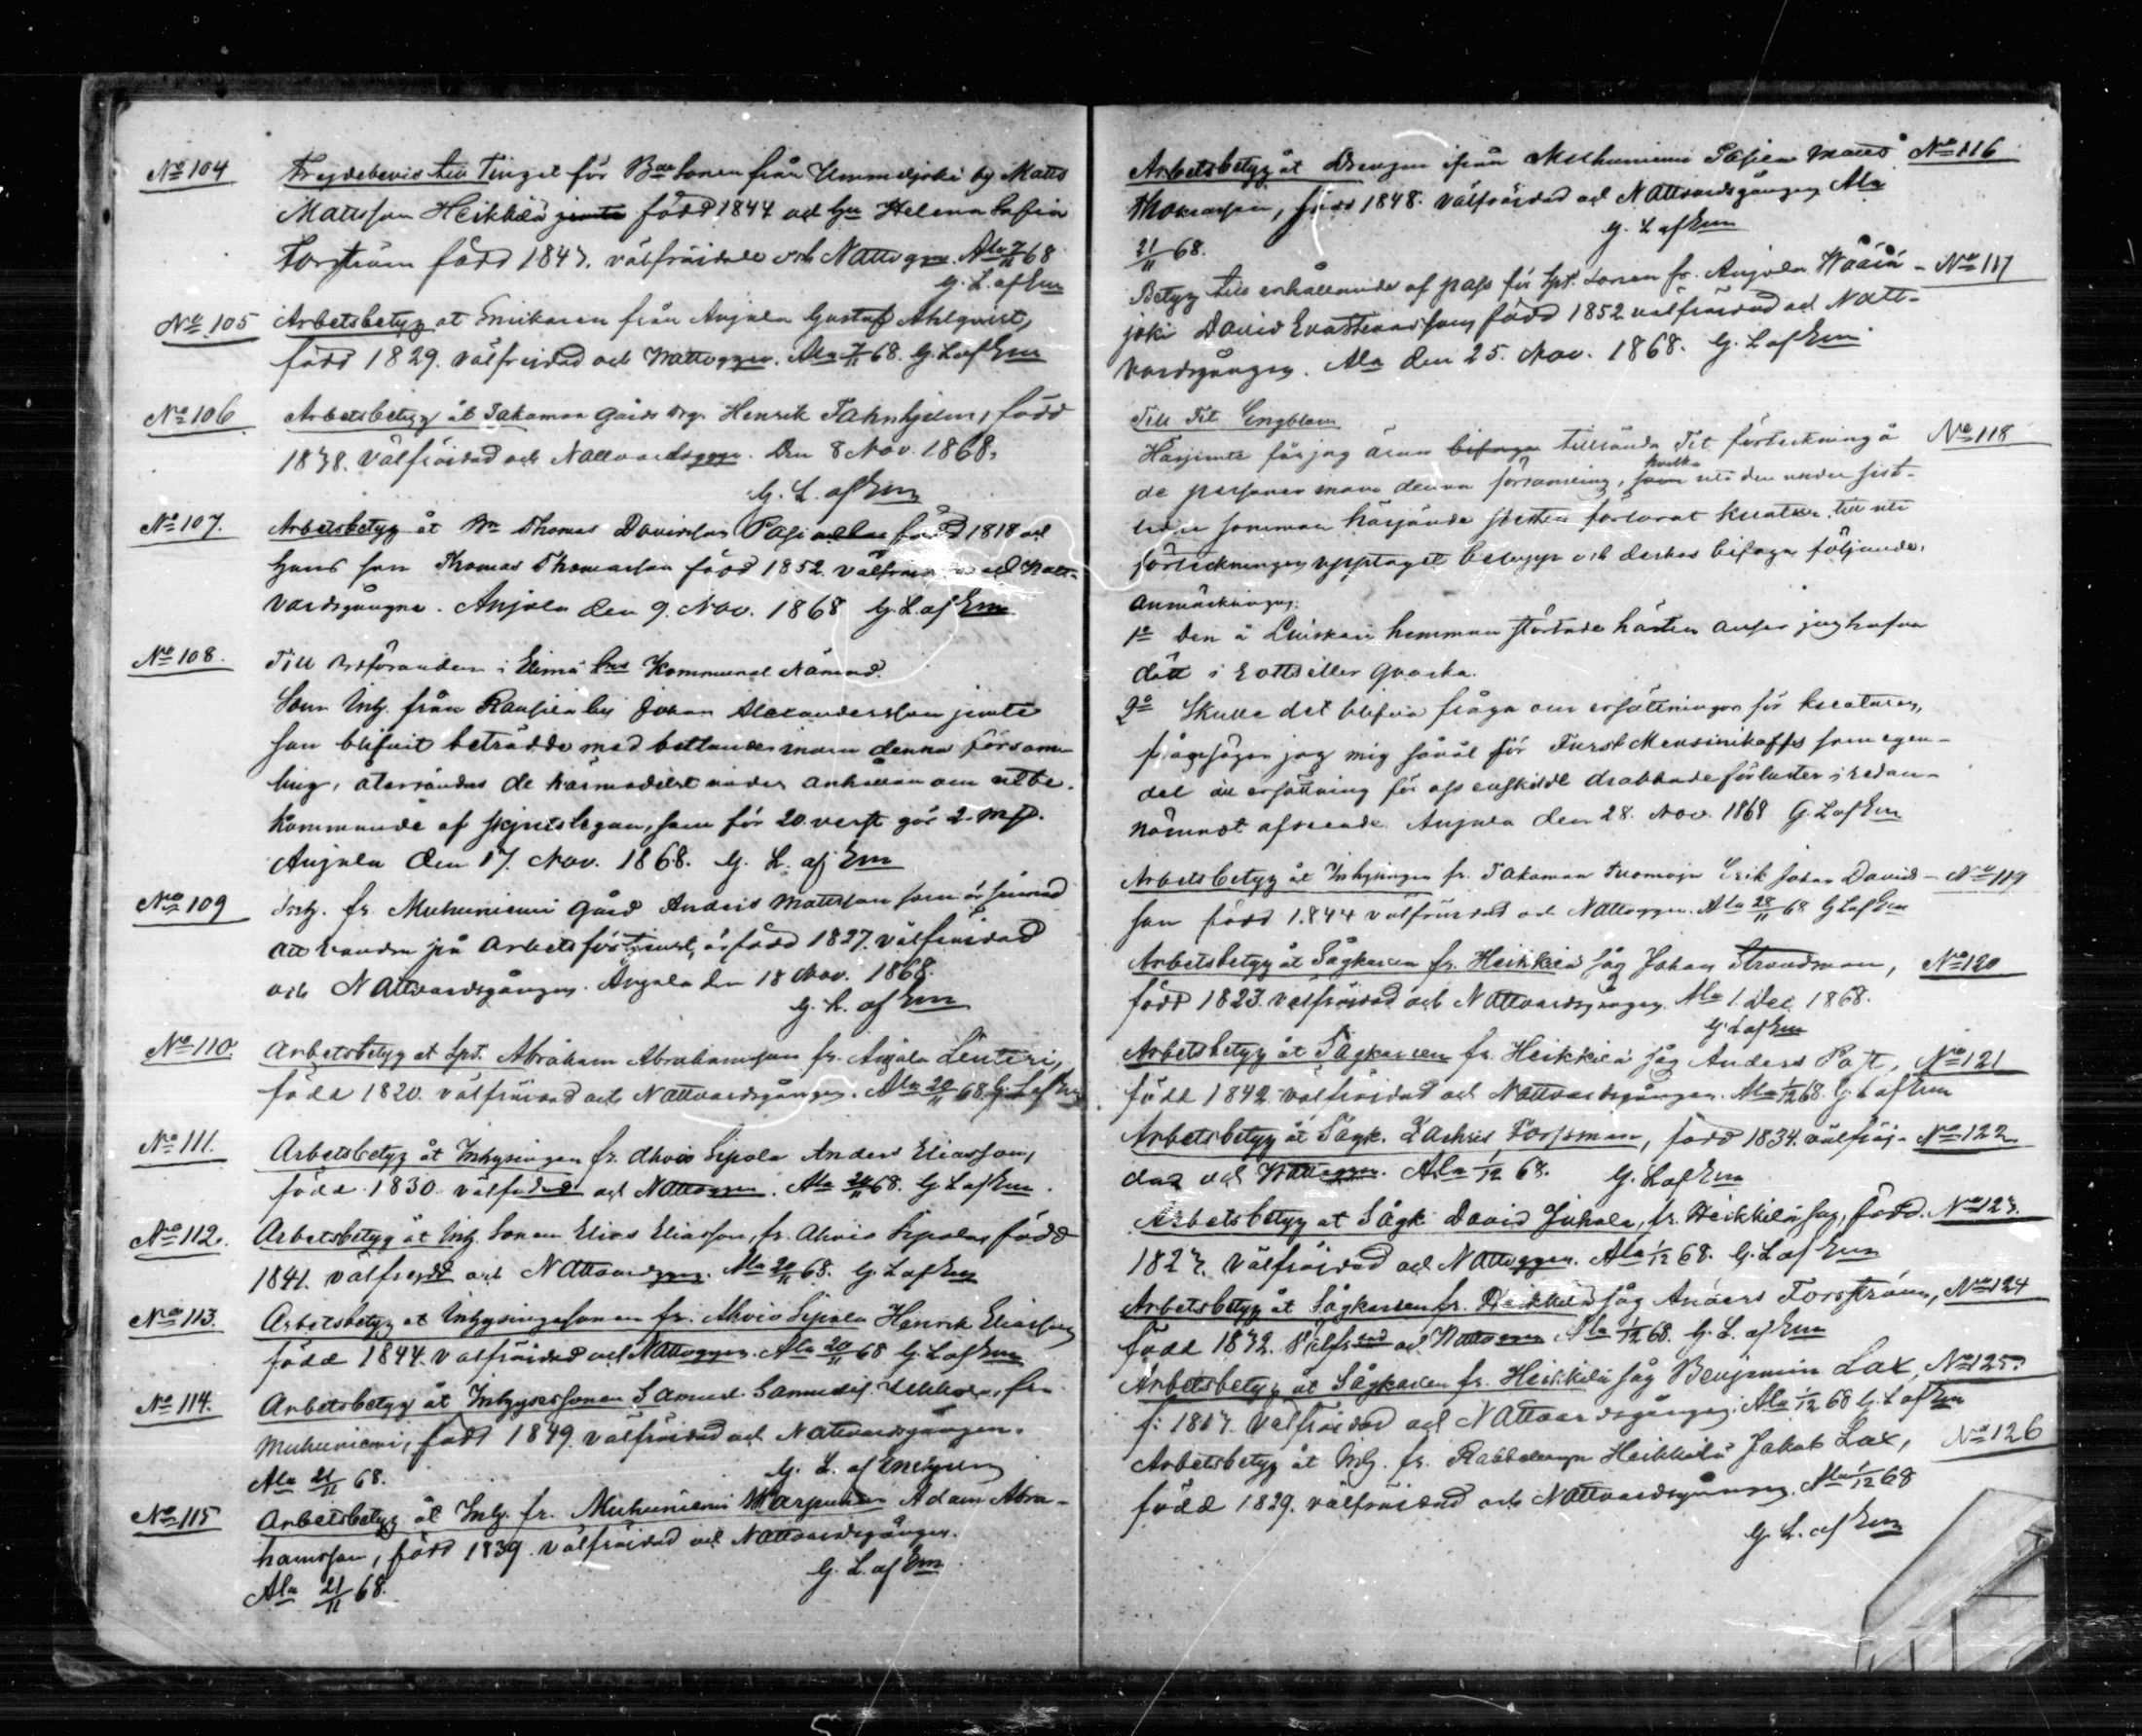 No 104 Frejdebevis till Tinget för Bde Sonen från Ummeljoki by Matts
Mattsson Heikkilä jemte född 1844 och hu Helena Sofia
Forström född 1847. välfräjdade och Nattvgne. Ala 7/11 68
G. L. af Em
No 105 Arbetsbetyg åt Snikaren från Anjala Gustaf Ahlqvist,
född 1829. välfräjdad och Nattvggen. Ala 7/11 68. G. L af Em
No 106 Arbetsbetyg åt Takamaa Gårds drg. Henrik Jahnhjelm, född
1838. Välfräjdad och Nattvardsggn. Den 8 Nov. 1868.
G. L. af Em
No 107. Arbetsbetyg åt Thomas Davidsson Pasi född 1818 och
hans son Thomas Thomasson född 1852. välfräjdade och Natt-
vardsgångne. Anjala den 9. Nov. 1868 G. L. af Em
No 108. Till Ordföranden i Elimä Kommunal Nämnd.
Som Inh. från Raussila by Johan Alexandersson jemte
son blifvit beträdde med bettlande inom denna försam-
ling, återsändes de härmedelst under anhållan om utbe-
kommande af skjutslegan, som för 20 verst gör 2 mk.
Anjala den 17. Nov. 1868. G. L. af Em
No 109 Inh. fr. Muhuniemi Gård Anders Mattsson som är sinnad
att vandra på arbetsförtjenst, är född 1827. välfräjdad
och Nattvardsgången. Anjala den 18 Nov. 1868.
G. L. af Em
No 110. Arbetsbetyg åt Spt. Abraham Abrahamsson fr. Anjala Lenteri,
född 1820. välfräjdad och Nattvardsgången. Ala 20/11 68. G. L af Em
No 111. Arbetsbetyg åt Inhysingen fr. Ahvio Sipola Anders Eliasson,
född 1830. välfrdad och Nattvggen. Ala 20/11 68. G. L af Em.
No 112. Arbetsbetyg åt Inh. Sonen Elias Eliasson, fr. Ahvio Sipola, född
1841. välfrejdd och Nattvardggn. Ala 20/11 68. G. L af Em
No 113. Arbetsbetyg åt Inhysingesonen fr. Ahvio Sipola Henrik Eliasson
född 1844. välfräjdad och Nattvggen. Ala 20/11 68 G. L af Em
No 114. Arbetsbetyg åt Inhysessonen Samuel Samuelss. fr.
Muhuniemi, född 1849. välfräjdad och Nattvardsgången.
Ala 21/11 68. G. L. af Enehjelm
No 115 Arbetsbetyg åt Inh. fr. Muhuniemi Warpunen Adam Abra-
hamsson, född 1839. välfräjdad och Nattvardsgången.
Ala 21/11 68. G. L. af Em
Arbetsbetyg åt Drengen ifrån Muhuniemi Matts No 116
Thomasson, född 1848. Välfräjdad och Nattvardsgången Ala
21/11 68. G. L af Em
Betyg till erhållande af pass för Spt. Sonen fr. Anjala Wäärä- No 117
joki David född 1852 välfräjdad och Natt-
vardsgången. Ala den 25. Nov. 1868. G. L af Em
Till Tit Engblom
Härjemte får jag äran bifoga tillsända Tit förteckning å No 118
de personer inom denna församling, som hvilka uti den under sist-
liden sommar härjande förlorat kreatur, till uti
förteckningen upptaget belopp och derhos bifoga följande
anmärkningar:
1o Den å hemman störtade hästen anser jag hafva
dött i
2o Skulle det blifva fråga om ersättningar för kreaturen,
frånsäger jag mig såväl för Furst Mensinikoffs som egen
del all ersättning för oss enskildt drabbade förluster i redan
nämnat afseende. Anjala den 28. Nov. 1868 G. L af Em
Arbetsbetyg åt Inhysingen fr. Takamaa Tuomoja Erik Johan David- No 119
son född 1844 välfräjdad och Nattvggen. Ala 28/11 68 G L af Em
Arbetsbetyg åt Sågkarlen fr. Heikkilä såg Johan Strandman, No 120
född 1823. välfräjdad och Nattvardsgången. Ala 1. Dec. 1868.
G. L af Em
Arbetsbetyg åt Sågkarlen fr. Heikkilä såg Anders Post, No 121
född 1842. välfräjdad och Nattvardsgången. Ala 1/12 68. G. L af Em
Arbetsbetyg åt Sågk. Zachris Forssman, född 1834. välfräj- No 122
dad och Nattvggen. Ala 1/12 68. G. L af Em
Arbetsbetyg åt Sågk. David Juhola, fr. Heikkilä såg, född. No 123.
1823. Välfräjdad och Nattvggen. Ala 1/12 68. G. L af Em
Arbetsbetyg åt Sågkarlen fr. Heikkilä såg Anders Forsström, No 124
född 1832. Välfr och Nattvggen Ala 1/12 68. G. L. af Em
Arbetsbetyg åt Sågkarlen fr. Heikkilä såg Benjamin Lax, No 125.
f. 1817. Välfräjdad och Nattvardsgången. Ala 1/12 68 G. L af Em
Arbetsbetyg åt Inh. fr. Heikkilä Jakob Lax, No 126
född 1829. välfräjdad och Nattvardsgången. Ala 1/12 68
G. L. af Em